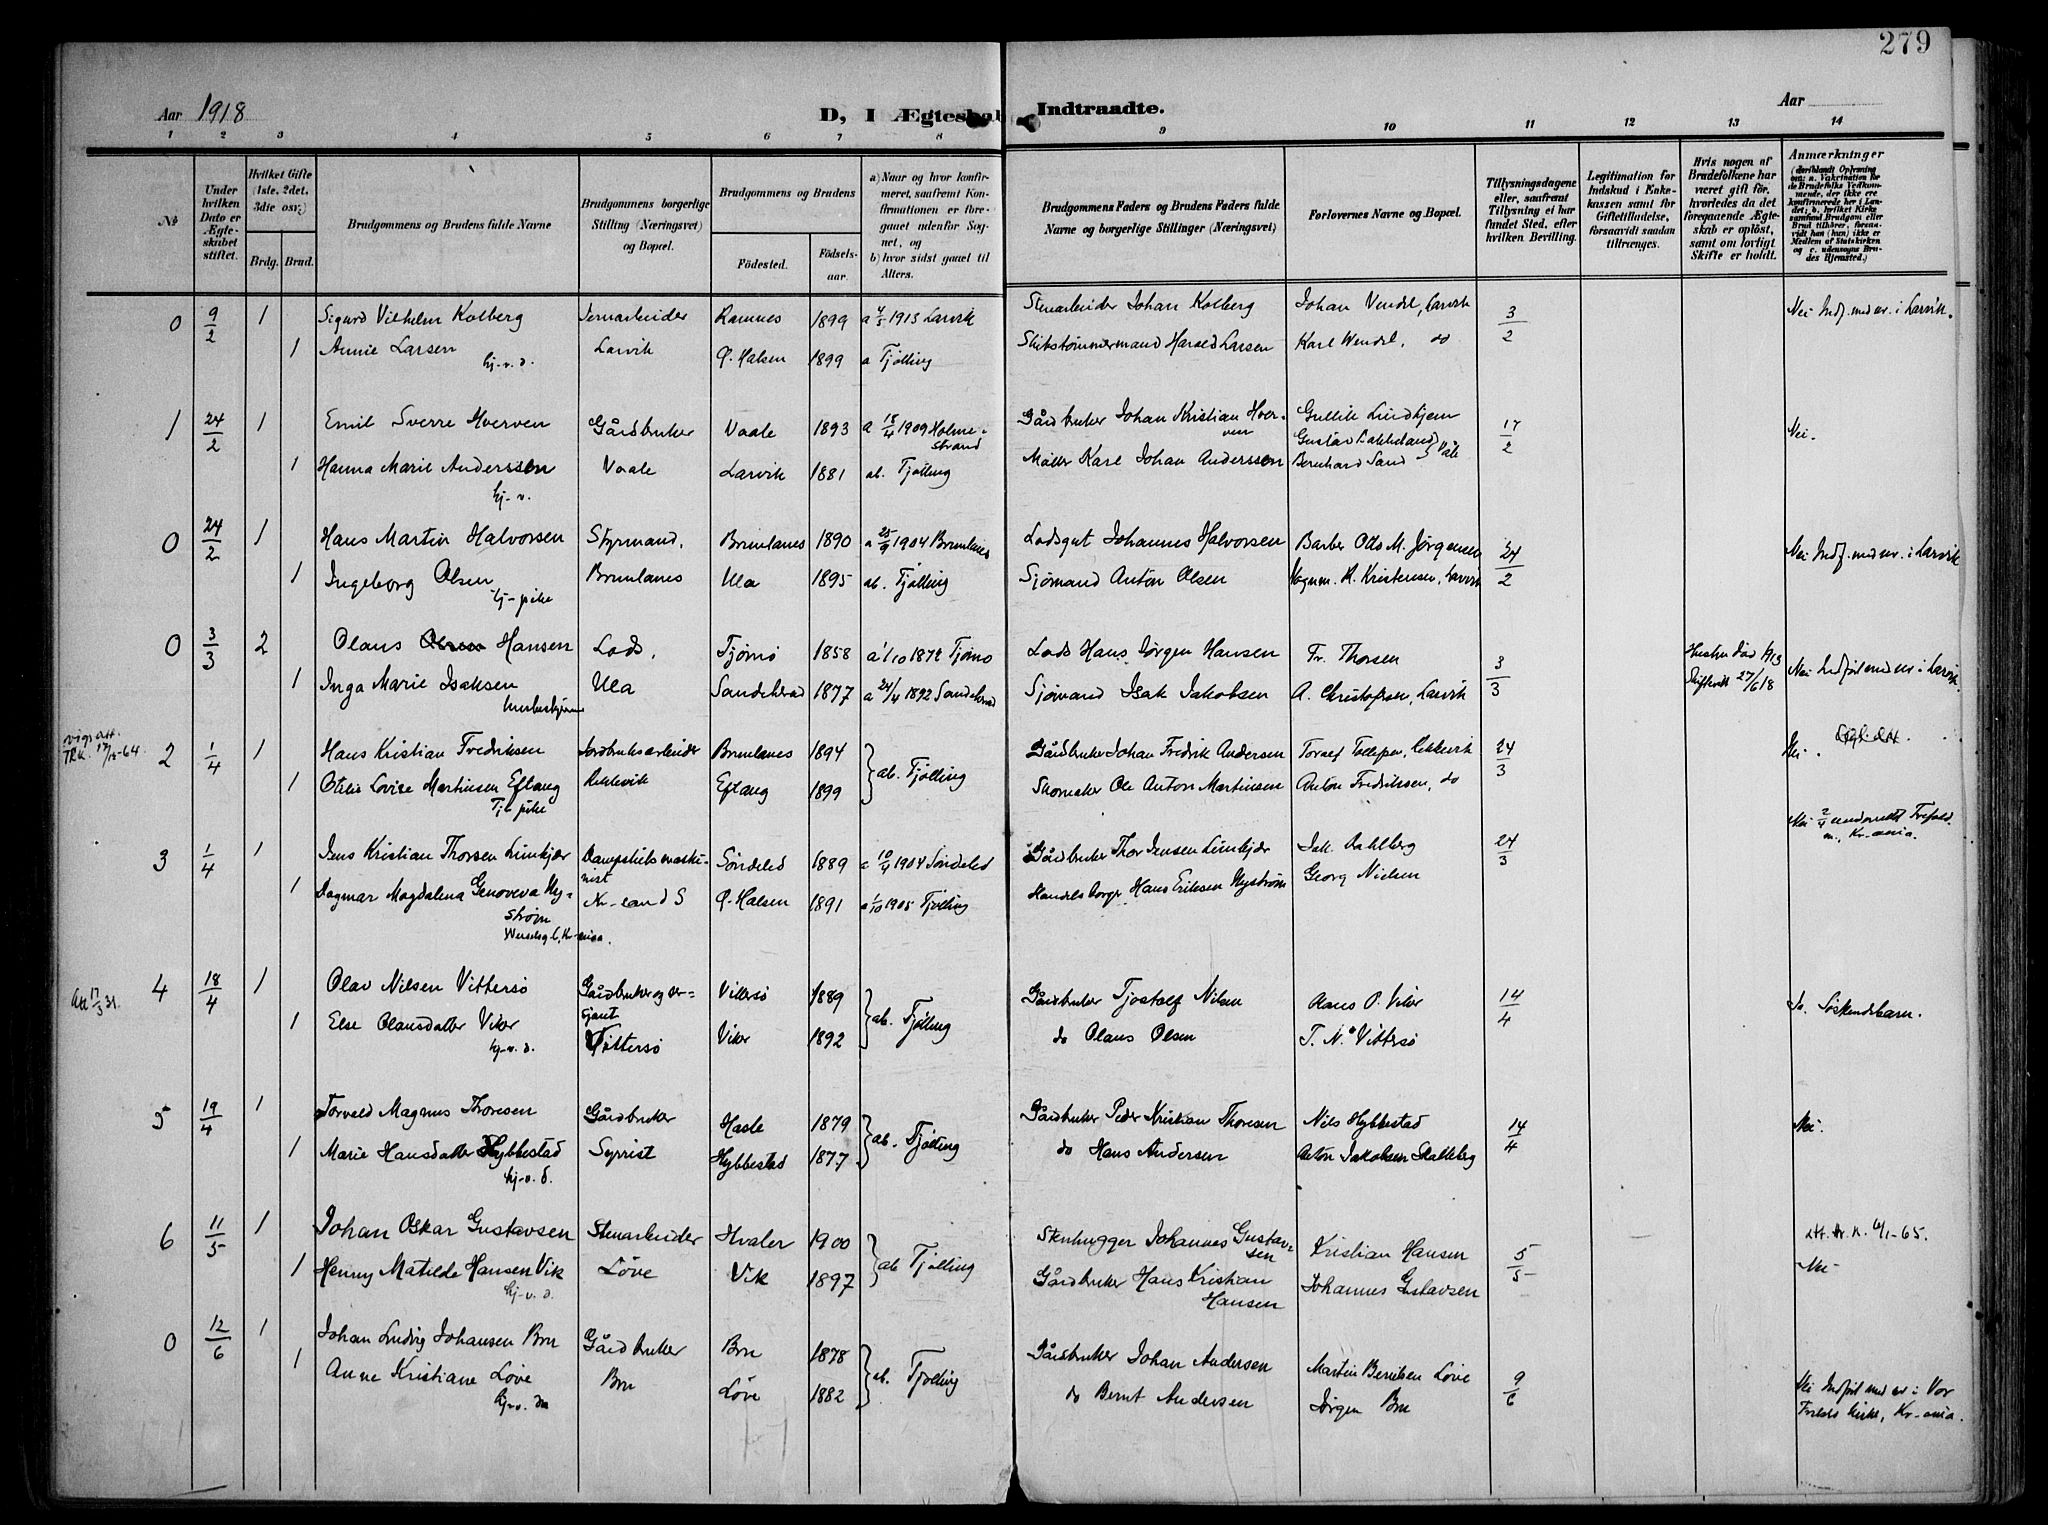 279
Aar 1918
D, I Ægteskab Indtraadte.
Aar
1 2 3 4 5 6 7 8 9 10 11 12 13 14
№
Under hvilken Dato er Ægteskabet stiftet.
Hvilket Gifte (1ste, 2det, 3die osv.)
Brdg. Brud.
Brudgommens og Brudens fulde Navne
Brudgommens borgerlige Stilling (Næringsvei) og Bopæl.
Brudgommens og Brudens
Fødested.
Fødselsaar.
a) Naar og hvor konfirmeret, saafremt Konfirmationen er foregaaet udenfor Sognet, og
b) hvor sidst gaaet til Alters.
Brudgommens Faders og Brudens Faders fulde Navne og borgerlige Stillinger (Næringsvei)
Forlovernes Navne og Bopæl.
Tillysningsdagene eller, saafremt Tillysning ei har fundet Sted, efter hvilken Bevilling.
Legitimation for Indskud i Enkekassen samt for Giftetilladelse, forsaavidt saadan tiltrænges.
Hvis nogen af Brudefolkene har været gift før, hvorledes da det foregaaende Ægteskab er opløst, samt om lovligt Skifte er holdt.
Anmærkninger
(deriblandt Oplysning om: a. Vakcination for de Brudefolks Vedkommende, der ikke ere konfirmerede her i Landet; b. hvilket Kirkesamfund Brudgom eller Brud tilhører, forsaavidt han (hun) ikke er Medlem af Statskirken og c. udensogns Brudes Hjemsted.)
0 9/2 1 Sigurd Vilhelm Kolberg Stenarbeider Ramnes 1899 a 4/5 1913 Larvik Stenarbeider Johan Kolberg Johan Vendel, Larvik 3/2 Nei Indf. med nr. i Larvik.
1 Annie Larsen Larvik Ø. Halsen 1899 a Tjølling Skibstømmermand Harald Larsen Karl Wendel, do
hj-v. d.
1 24/2 1 Emil Sverre Hverven Gårdbruker Vaale 1893 a 18/4 1909 Holmestrand Gårdbruker Johan Kristian Hverven Gullik Lindhjem 17/2 Nei.
Gustav
1 Hanna Marie Anderssen Vaale Larvik 1881 ab. Tjølling Møller Karl Johan Anderssen Bernhard Sand } Våle
hj-v.
0 24/2 1 Hans Martin Halvorsen Styrmand, Brunlanes 1890 a 25/9 1904 Brunlanes Losgut Johannes Halvorsen Barber Otto M. Jørgensen 24/2 Nei Indf. med nr. i Larvik
1 Ingeborg Olsen Brunlanes Ula 1895 ab. Tjølling Sjømand Anton Olsen Vognm. K. Kristensen, Larvik
tj-pike
0 3/3 2 Olaus Hansen Lods, Tjømø 1858 a 1/10 1872 Tjømø Lods Hans Jørgen Hansen Fr. Thorsen 3/3 Hustru død 4/13 Nei Indført med nr i Larvik.
1 Inga Marie Isaksen Ula Sandeherad 1877 a 24/4 1892 Sandeherad Sjømand Isak Jakobsen A. Christofersen, Larvik Skifteatt 27/6 18
vigs att.
2 1/4 1 Hans Kristian Fredriksen Jordbruksarbeider Brunlanes 1894 } ab. Tjølling Gårdbruker Johan Fredrik Andersen Toralf Tollefsen, Rekkevik 24/3 Nei.
1 Otilie Lovise Martinsen Eftang Rekkevik Eftang 1899 Skomaker Ole Anton Martinsen Anton Fredriksen, do
Tj. pike
3 1/4 1 Jens Kristian Thorsen Limkjær Dampskibsmaskinist Søndeled 1889 a 10/4 1904 Søndeled Gårdbruker Thor Jensen Limkjær Jak. Dahlberg 24/3 Nei 2/4 underrettet Trefold. m., Kr-ania.
1 Dagmar Magdalena Genoveva Nystrøm Kr-sand S Ø-Halsen 1891 a 1/10 1905 Tjølling Handelsborger Hans Eriksen Nystrøm Georg Nielsen
Kr-ania.
Att 17/3 31.
4 18/4 1 Olav Nilsen Vittersø Gårdbruker og sersjant Vittersø 1889 } ab. Tjølling Gårdbruker Tjostolf Nilsen Olaus O. Viker 14/4 Jo. Søskendebarn.
1 Else Olausdatter Viker Vittersø Viker 1892 do Olaus Olsen T. N. Vittersø
hj-v. d.
5 19/4 1 Torvald Magnus Thoresen Gårdbruker Hasle 1879 } ab. Tjølling Gårdbruker Peder Kristian Thoresen Nils Hybbestad 14/4 Nei.
1 Marie Hansdatter Hybbestad Syrrist Hybbestad 1877 do Hans Andersen Anton Jakobsen Skalleberg
hj-v. d.
6 11/5 1 Johan Oskar Gustavsen Stenarbeider Hvaler 1900 } ab Tjølling Stenhugger Johannes Gustavsen Kristian Hansen 5/5
1 Henny Matilde Hansen Vik Løve Vik 1897 Gårdbruker Hans Kristian Hansen Johannes Gustavsen Nei
hj-v. d.
0 12/6 1 Johan Ludvig Johansen Bru Gårdbruker Bru 1878 } ab. Tjølling Gårdbruker Johan Andersen Martin Berntsen Løve 9/6 Nei Indført med nr. i Vor Frelsers kirke, Kr-ania.
1 Anne Kristiane Løve Bru Løve 1882 do Bernt Andersen Jørgen Bru
hj-v. da